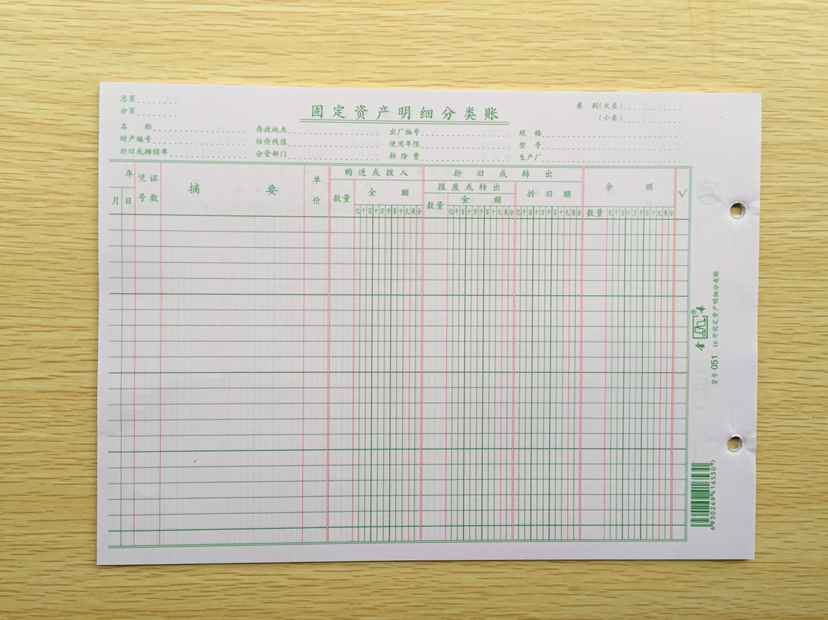 总页
分页
固定资产明细分类账
类 别(大类)
(小类)
名 称 存放地点 出厂编号 规 格
财产编号 估价残值 使用年限 型 号
折旧或摊销率 分管部门 折旧费 生产厂
年 凭证 摘 要 单 购进或拨入 折旧或转出 余 额 √
月 日 号数 价 数量 金 额 报废或转出 折旧额 数量
数量 金额
16开固定资产明细分类账
货号 051